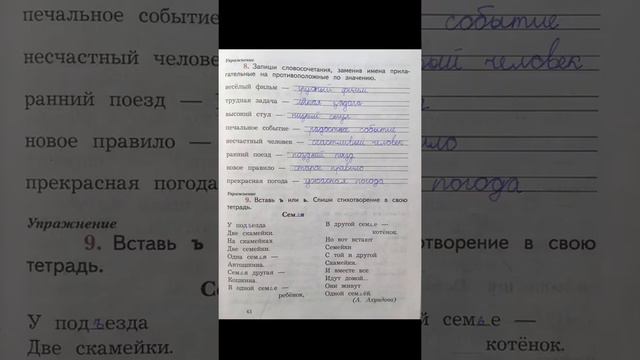 печальное событие
несчастный человек
ранний поезд —
новое правило —
прекрасная погода
Упражнение
9. Вставь ъ
тетрадь.
У подъезда
Две скамейки.
Упражнение
8. Запиши словосочетания, заменив имена прила-
гательные на противоположные по значению.
весёлый фильм — грустный фильм
трудная задача — лёгкая задача
высокий стул — низкий стул
печальное событие — радостное событие
несчастный человек — счастливый человек
ранний поезд — поздний поезд
новое правило — старое правило
прекрасная погода — ужасная погода
Упражнение
9. Вставь ъ или ь. Спиши стихотворение в свою
тетрадь.
Семья
У подъезда
Две скамейки.
На скамейках
Две семейки.
Одна семья —
Автошкина.
Семья другая —
Кошкина.
В одной семье —
ребёнок,
В другой семье —
котёнок.
Но вот встают
Семейки
С той и другой
Скамейки.
И вместе все
Идут домой...
Они живут
Одной семьёй.
(А. Ахундова)
43
событие
человек
погода
творение в свою
семье —
котёнок.